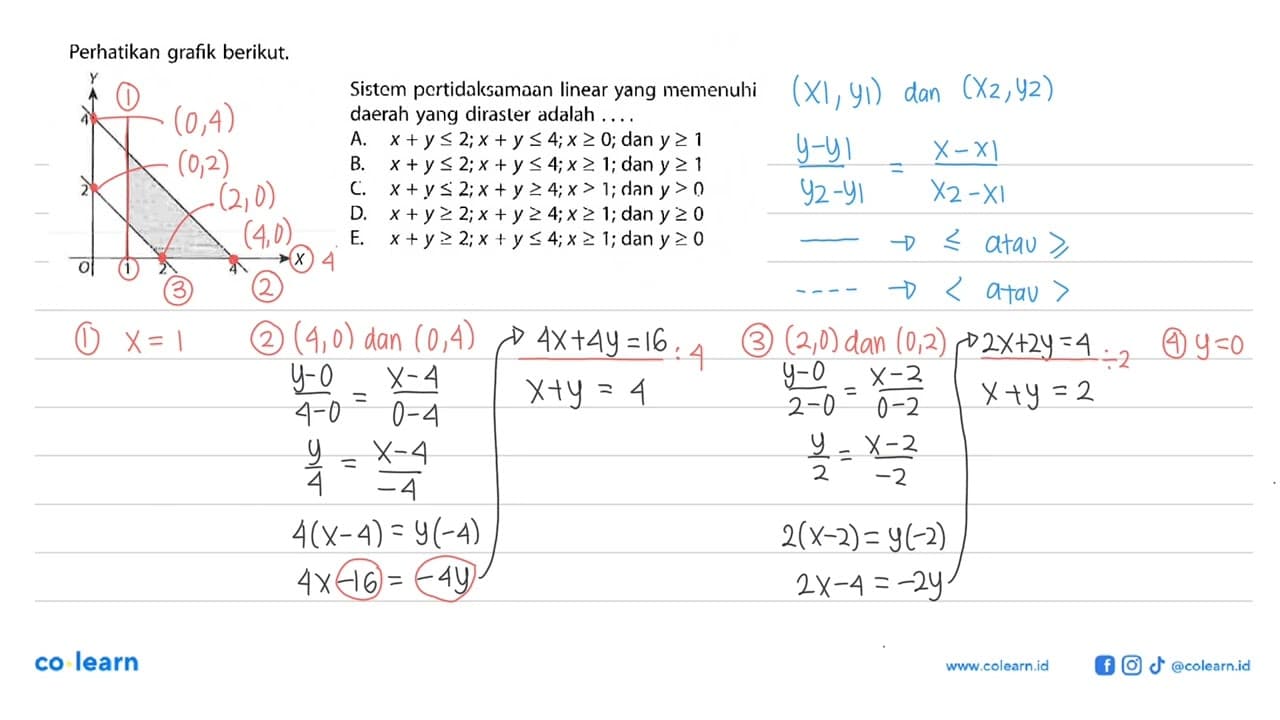 Perhatikan grafik berikut.
Y
4
2
O
1
2
4
X
①
(0,4)
(0,2)
(2,0)
(4,0)
4
③
②
Sistem pertidaksamaan linear yang memenuhi
daerah yang diraster adalah ....
A. x + y ≤ 2; x + y ≤ 4; x ≥ 0; dan y ≥ 1
B. x + y ≤ 2; x + y ≤ 4; x ≥ 1; dan y ≥ 1
C. x + y ≤ 2; x + y ≥ 4; x > 1; dan y > 0
D. x + y ≥ 2; x + y ≥ 4; x ≥ 1; dan y ≥ 0
E. x + y ≥ 2; x + y ≤ 4; x ≥ 1; dan y ≥ 0
(x1, y1) dan (x2, y2)
y-y1 / y2-y1 = x-x1 / x2-x1
—— → ≤ atau ≥
---- → < atau >
① x = 1
② (4,0) dan (0,4)
y-0 / 4-0 = x-4 / 0-4
y/4 = x-4 / -4
4(x-4) = y(-4)
4x-16 = -4y
4x+4y = 16 : 4
x+y = 4
③ (2,0) dan (0,2)
y-0 / 2-0 = x-2 / 0-2
y/2 = x-2 / -2
2(x-2) = y(-2)
2x-4 = -2y
2x+2y = 4 ÷2
x+y = 2
④ y=0
co learn
www.colearn.id
@colearn.id